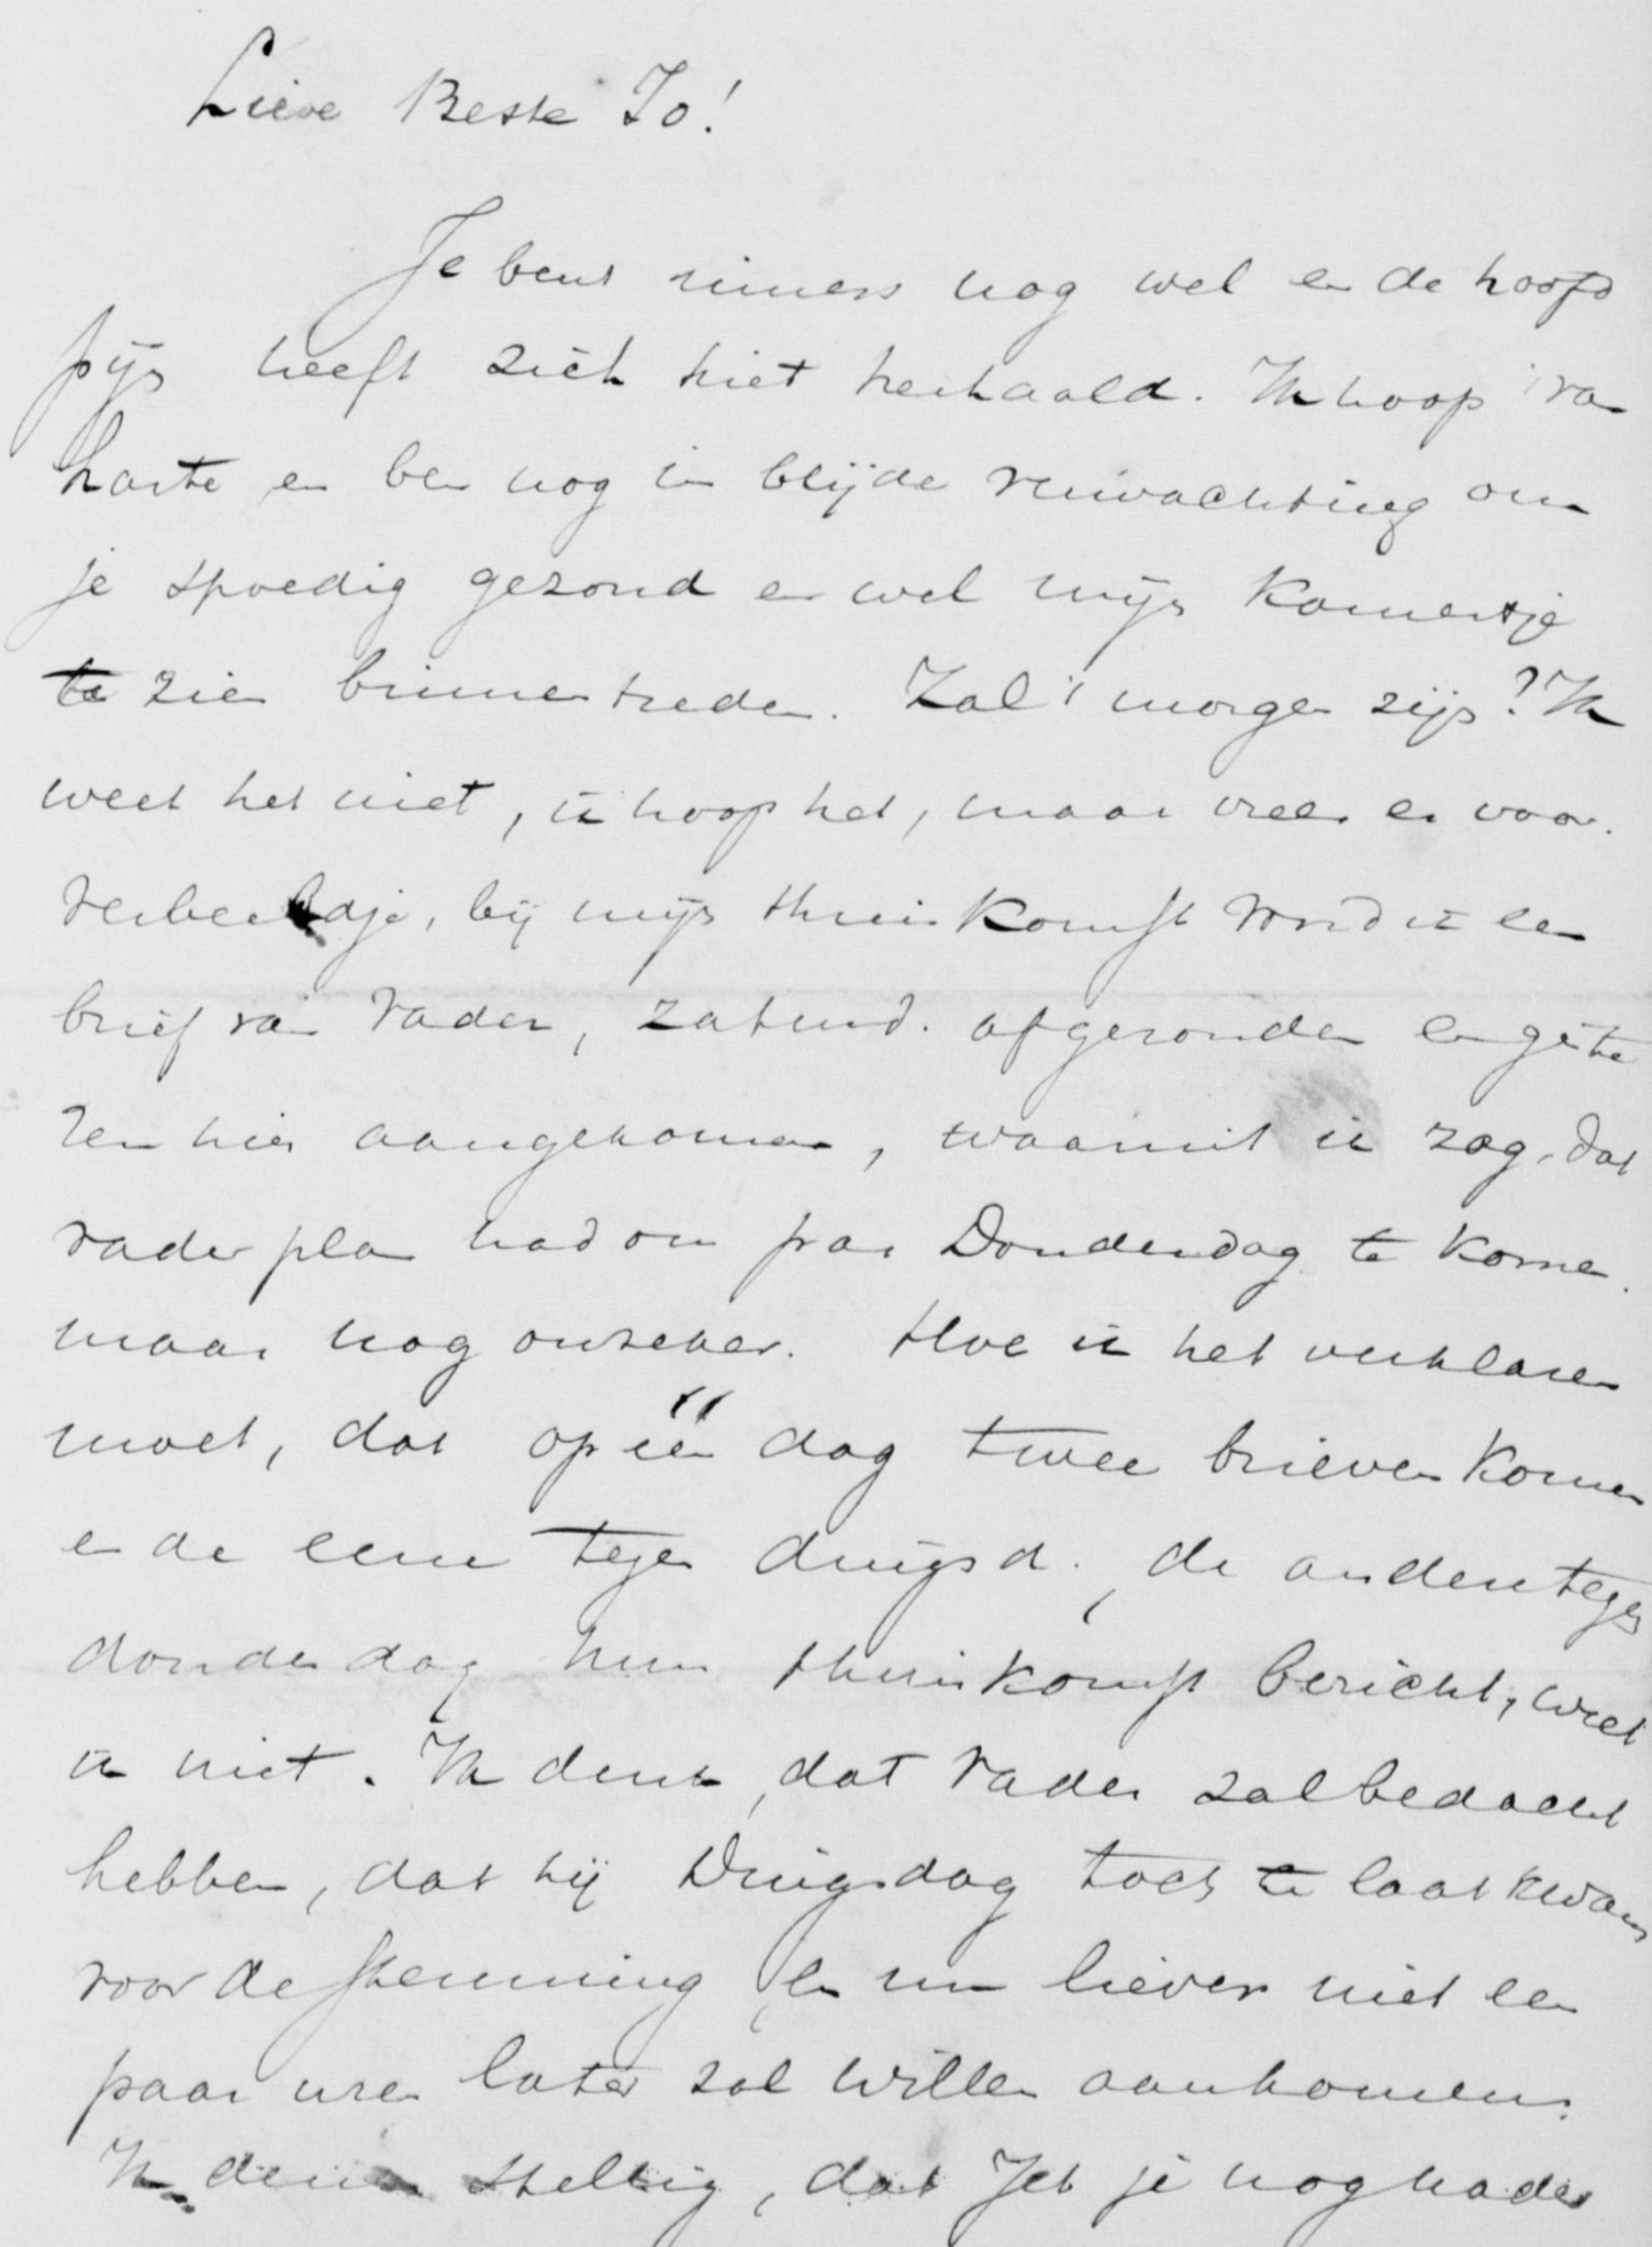 Lieve Beste Jo!
Je bent immers nog wel en de hoofd
pijn heeft zich niet herhaald. Ik hoop van
harte en ben nog in blijde verwachting om
je spoedig gezond en wel mijn kamertje
te zien binnentreden. Zal 't morgen zijn? Ik
weet het niet, ik hoop het, maar vrees er voor.
Verbeeld je, bij mijn thuiskomst vond ik een
brief van Vader, Zaturd. afgezonden en giste
ren hier aangekomen, waaruit ik zag, dat
vader plan had om pas Donderdag te komen.
maar nog onzeker. Hoe ik het verklaren
moet, dat op één dag twee brieven komen
en de eene tegen dingsd., de andere tegen
donderdag hun thuiskomst bericht, weet
ik niet. Ik denk, dat Vader zal bedacht
hebben, dat hij Dingsdag toch te laat kwam
voor de stemming en nu liever niet een
paar uren later zal willen aankomen.
Ik denk stellig, dat Jet je nog nader